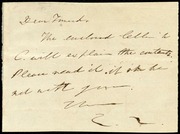 Dear Friend,
The enclosed letter to
C. will explain the contents.
Please read it, if he be
not with you.